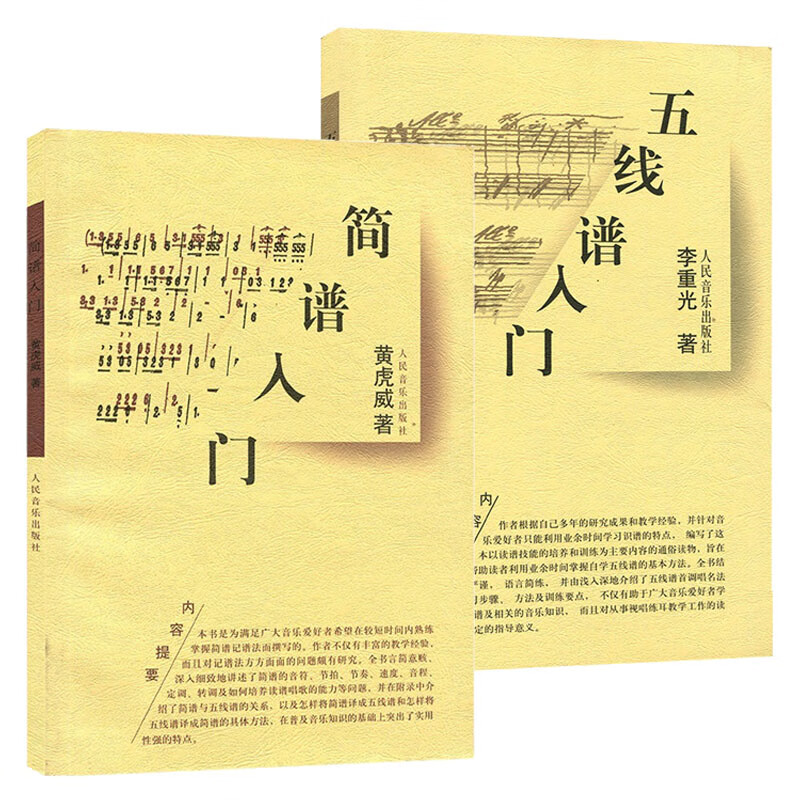 简谱入门
黄虎威著
人民音乐出版社
简谱入门
黄虎威 著
人民音乐出版社
内容提要
本书是为满足广大音乐爱好者希望在较短时间内熟练
掌握简谱记谱法而撰写的。作者不仅有丰富的教学经验，
而且对记谱法方方面面的问题颇有研究。全书言简意赅、
深入细致地讲述了简谱的音符、节拍、节奏、速度、音程、
定调、转调及如何培养读谱唱歌的能力等问题，并在附录中介
绍了简谱与五线谱的关系，以及怎样将简谱译成五线谱和怎样将
五线谱译成简谱的具体方法，在普及音乐知识的基础上突出了实用
性强的特点。
五线谱入门
李重光 著
人民音乐出版社
内容
作者根据自己多年的研究成果和教学经验，并针对音
乐爱好者只能利用业余时间学习识谱的特点，编写了这
本以读谱技能的培养和训练为主要内容的通俗读物，旨在
帮助读者利用业余时间掌握自学五线谱的基本方法。全书结
谨，语言简练，并由浅入深地介绍了五线谱首调唱名法
步骤、方法及训练要点，不仅有助于广大音乐爱好者学
谱及相关的音乐知识，而且对从事视唱练耳教学工作的读
定的指导意义。